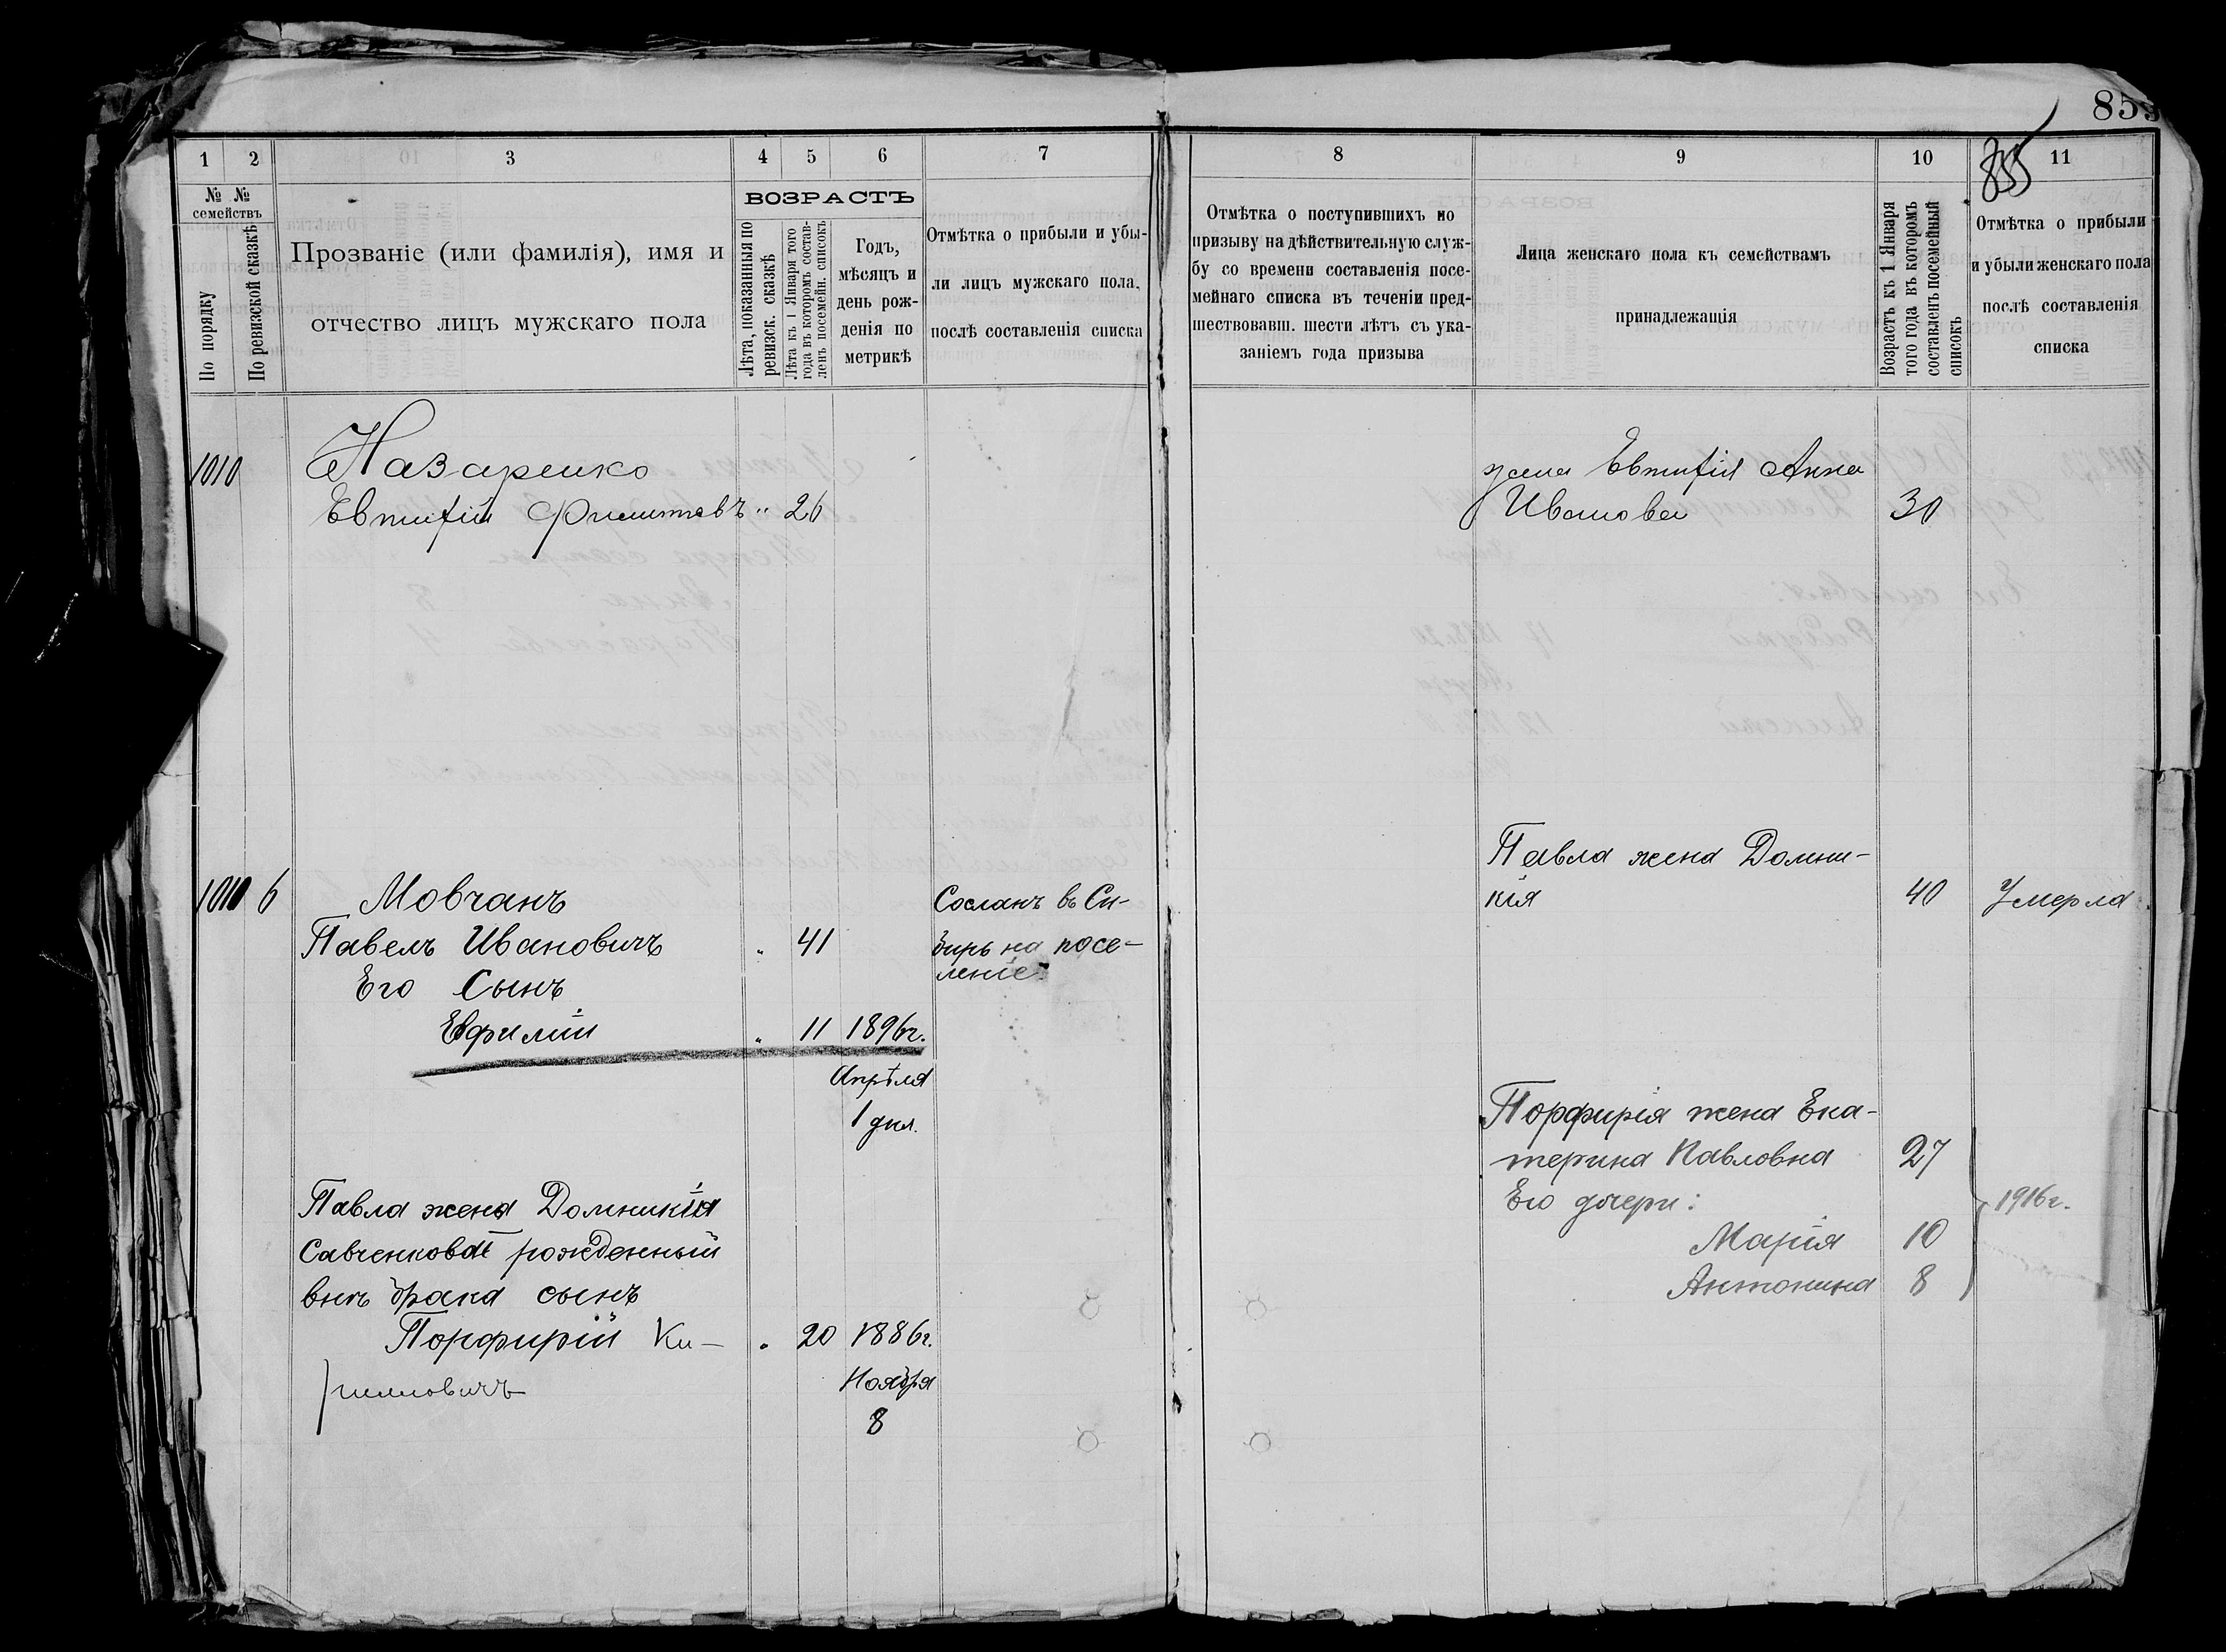 853
855
1
2
3
4
5
6
7
№ №
семействъ
По порядку
По ревизской сказкѣ
Прозваніе (или фамилія), имя и
отчество лицъ мужскаго пола
ВОЗРАСТЪ
Лѣта, показанныя по
ревизск. сказкѣ
Лѣта къ 1 Января того
года въ которомъ состав-
ленъ посемейн. списокъ
Годъ,
мѣсяцъ и
день рож-
денія по
метрикѣ
Отмѣтка о прибыли и убы-
ли лицъ мужскаго пола,
послѣ составленія списка
1010
Назаренко
Евтифій " 26
1010 6
Мовчанъ
Павелъ Ивановичъ " 41
Сосланъ въ Си-
бирь на посе-
леніе.
Его Сынъ
Евфимій " 11 1896г.
Апрѣля
1 дня.
Павла жена Домникія
Савченковой рожденный
внѣ брака сынъ
Порфирій Ки- " 20 1886г.
рилловичъ
Ноября
8
8
9
10
11
Отмѣтка о поступившихъ по
призыву на дѣйствительную служ-
бу со времени составленія посе-
мейнаго списка въ теченіи пред-
шествовавш. шести лѣтъ съ ука-
заніемъ года призыва
Лица женскаго пола къ семействамъ
принадлежащія
Возрастъ къ 1 Января
того года въ которомъ
составленъ посемейный
списокъ
Отмѣтка о прибыли
и убыли женскаго пола
послѣ составленія
списка
жена Евтифія Анна
Иванова 30
Павла жена Домни-
кія 40 Умерла
Порфирія жена Ека-
терина Павловна 27
Его дочери:
Марія 10
Антонина 8
1916г.